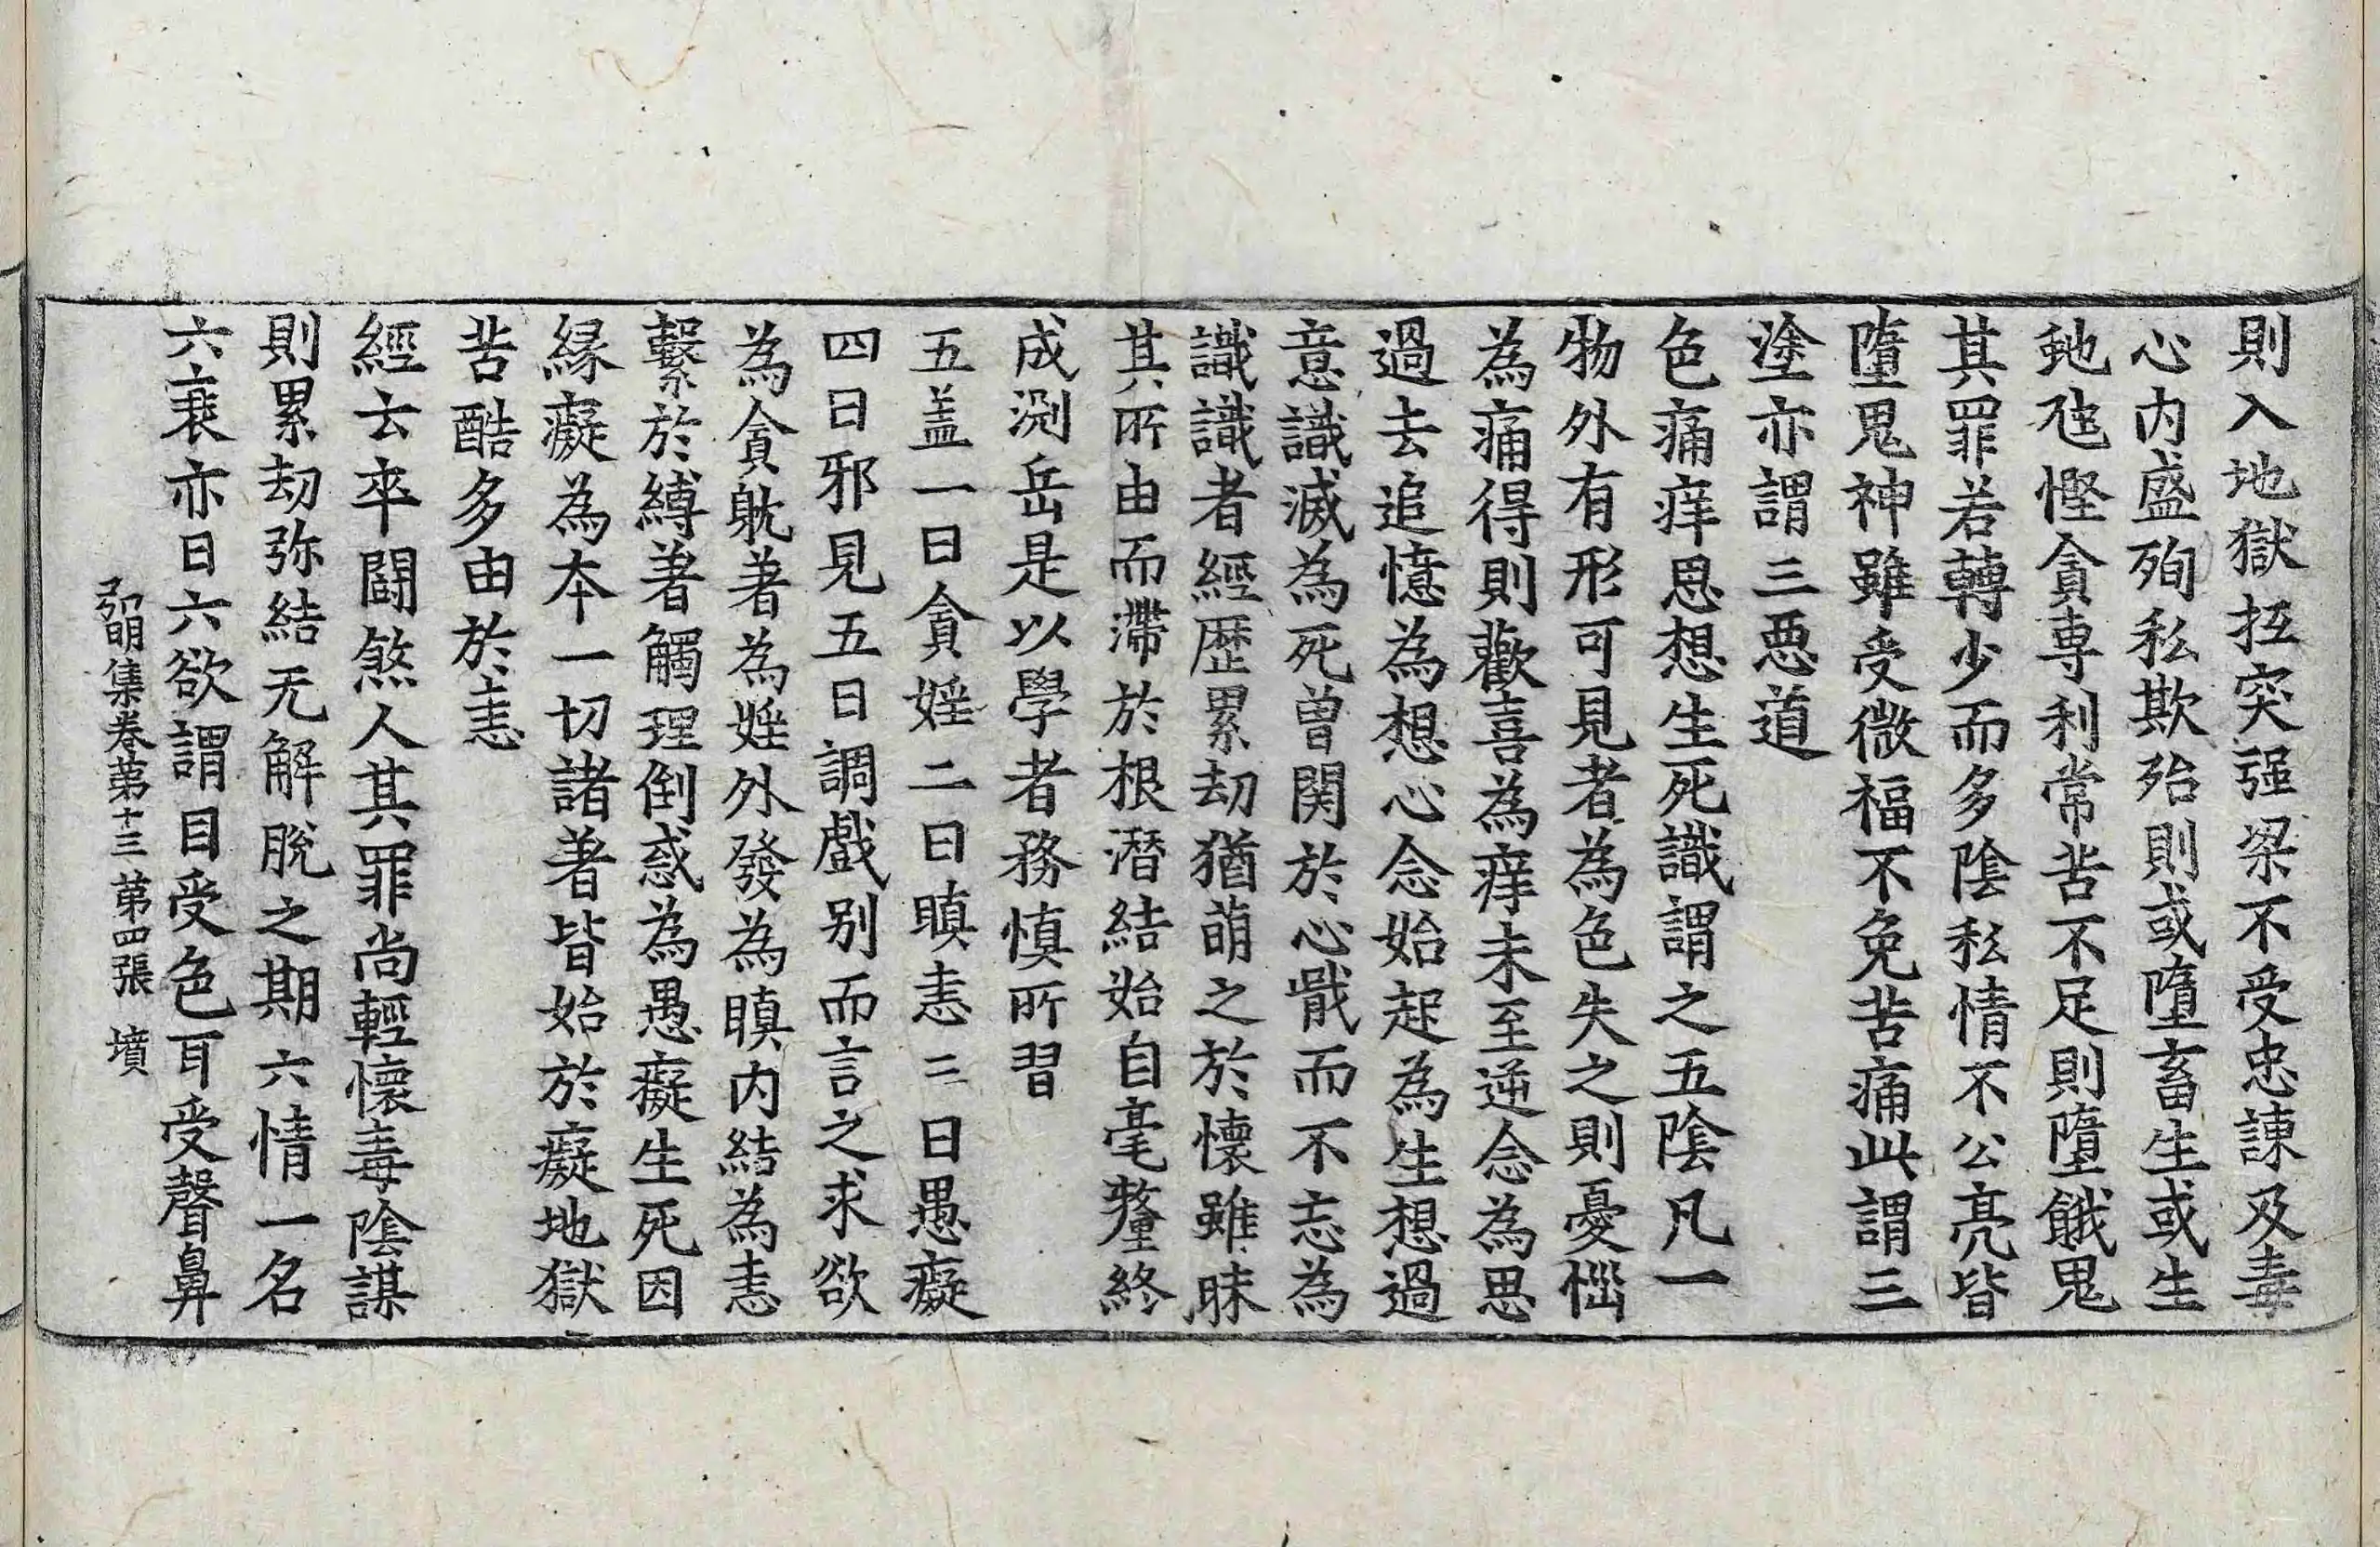 則入地獄抂突强梁不受忠諫及毒
心内盛殉私欺殆則或墮畜生或生
虵虺慳貪専利常苦不足則墮餓鬼
其罪若轉少而多陰私情不公亮皆
墮鬼神雖受微福不免苦痛此謂三
塗亦謂三惡道
色痛痒思想生死識謂之五陰凡一
物外有形可見者為色失之則憂惱
為痛得則歡喜為痒未至逆念為思
過去追憶為想心念始起為生想過
意識滅為死曾関於心戢而不忘為
識識者經歴累劫猶萌之於懷雖昧
其所由而滯於根潜結始自毫釐終
成渕岳是以學者務慎所習
五盖一曰貪婬二曰瞋恚三曰愚癡
四曰邪見五曰調戲别而言之求欲
為貪躭著為婬外發為瞋内結為恚
繫於縛著觸理倒惑為愚癡生死因
緣癡為本一切諸著皆始於癡地獄
苦酷多由於恚
經云卒鬪煞人其罪尚輕懷毒陰謀
則累劫弥結无解脫之期六情一名
六衰亦曰六欲謂目受色耳受聲鼻
弘明集卷苐十三 苐四張 墳